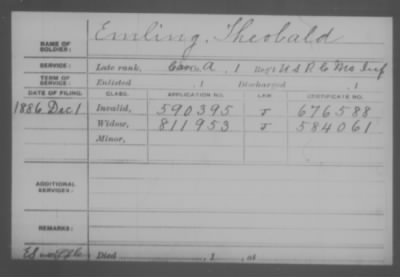 NAME OF SOLDIER: Emling, Theobald
SERVICE: Late rank, A, 1 Reg't U S R C Mo Inf
TERM OF SERVICE: Enlisted , 1 Discharged , 1
DATE OF FILING. CLASS. APPLICATION NO. LAW. CERTIFICATE NO.
1886 Dec 1 Invalid, 590395 J 676588
Widow, 811953 J 584061
Minor,
ADDITIONAL SERVICES:
REMARKS:
Died , 1 , at